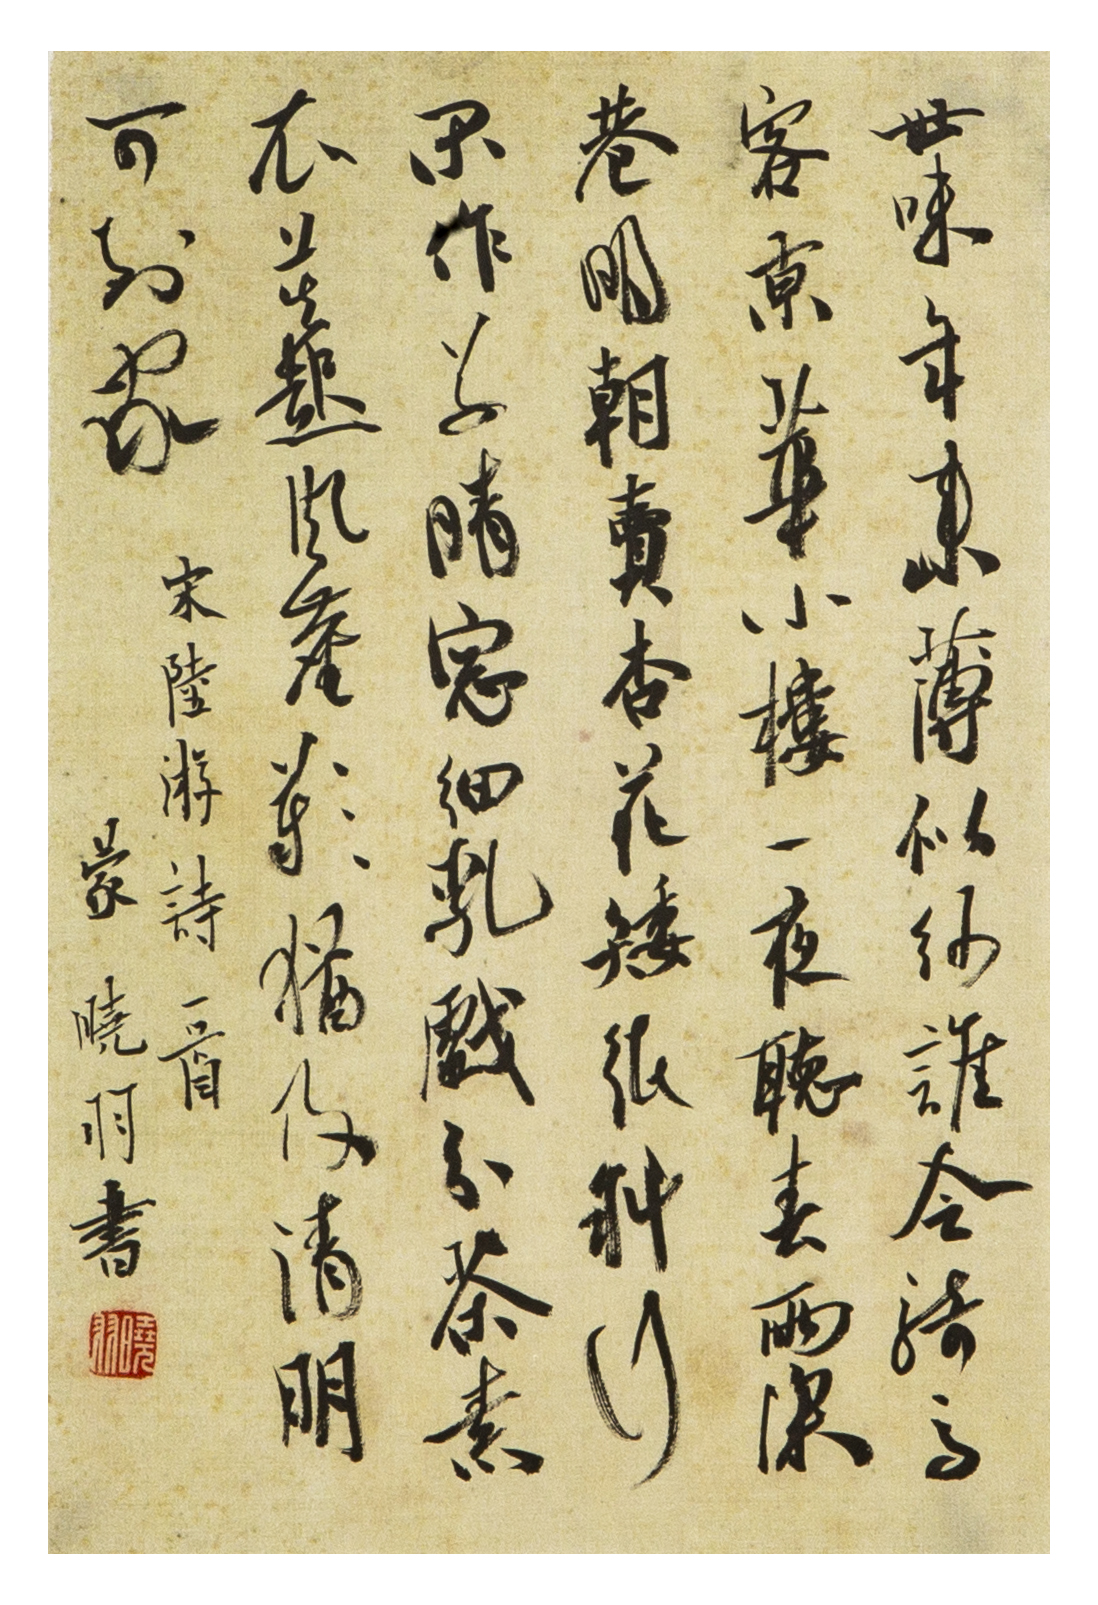 世味年來薄似紗誰令騎馬
客京華小樓一夜聽春雨深
巷明朝賣杏花矮紙斜行
閑作草晴窓細乳戲分茶素
衣莫起風塵歎猶及清明
可到家
宋陸游詩一首
蒙曉羽書
曉羽